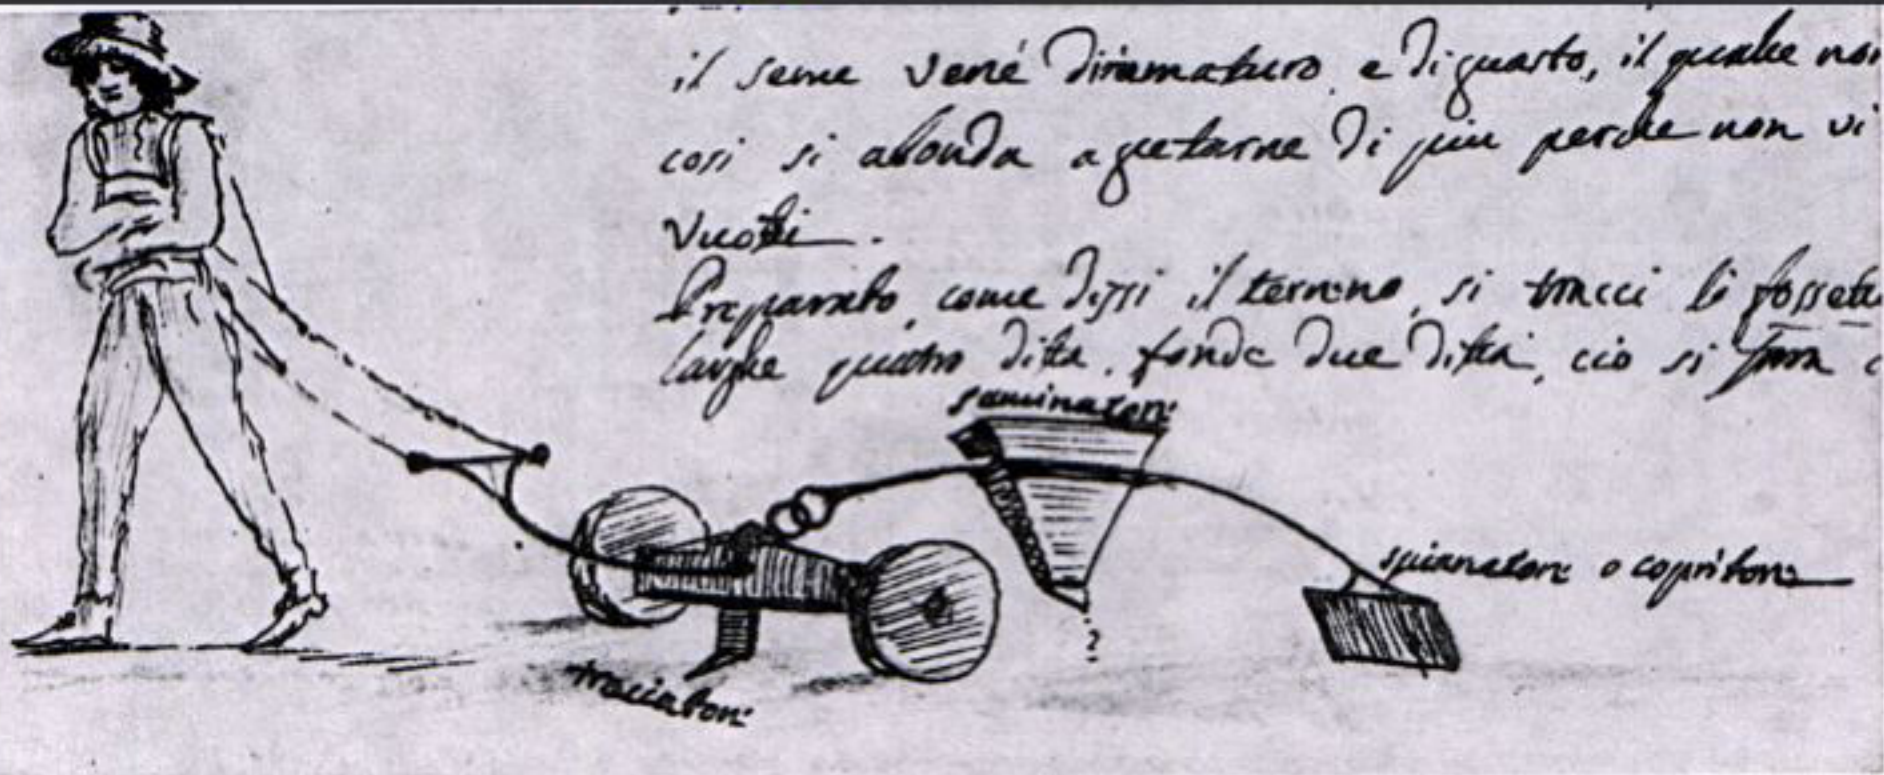 il seme vené dirramaturo e di guasto, il quale non
cosi si abonda a getarne di piu perche non vi
vuoti.
Preparato, come dissi il terreno, si tracci li fossett
larghe quatro dita, fonde due dita, cio si fara c
seminatore
spianatore o copritore
?
tracciatore